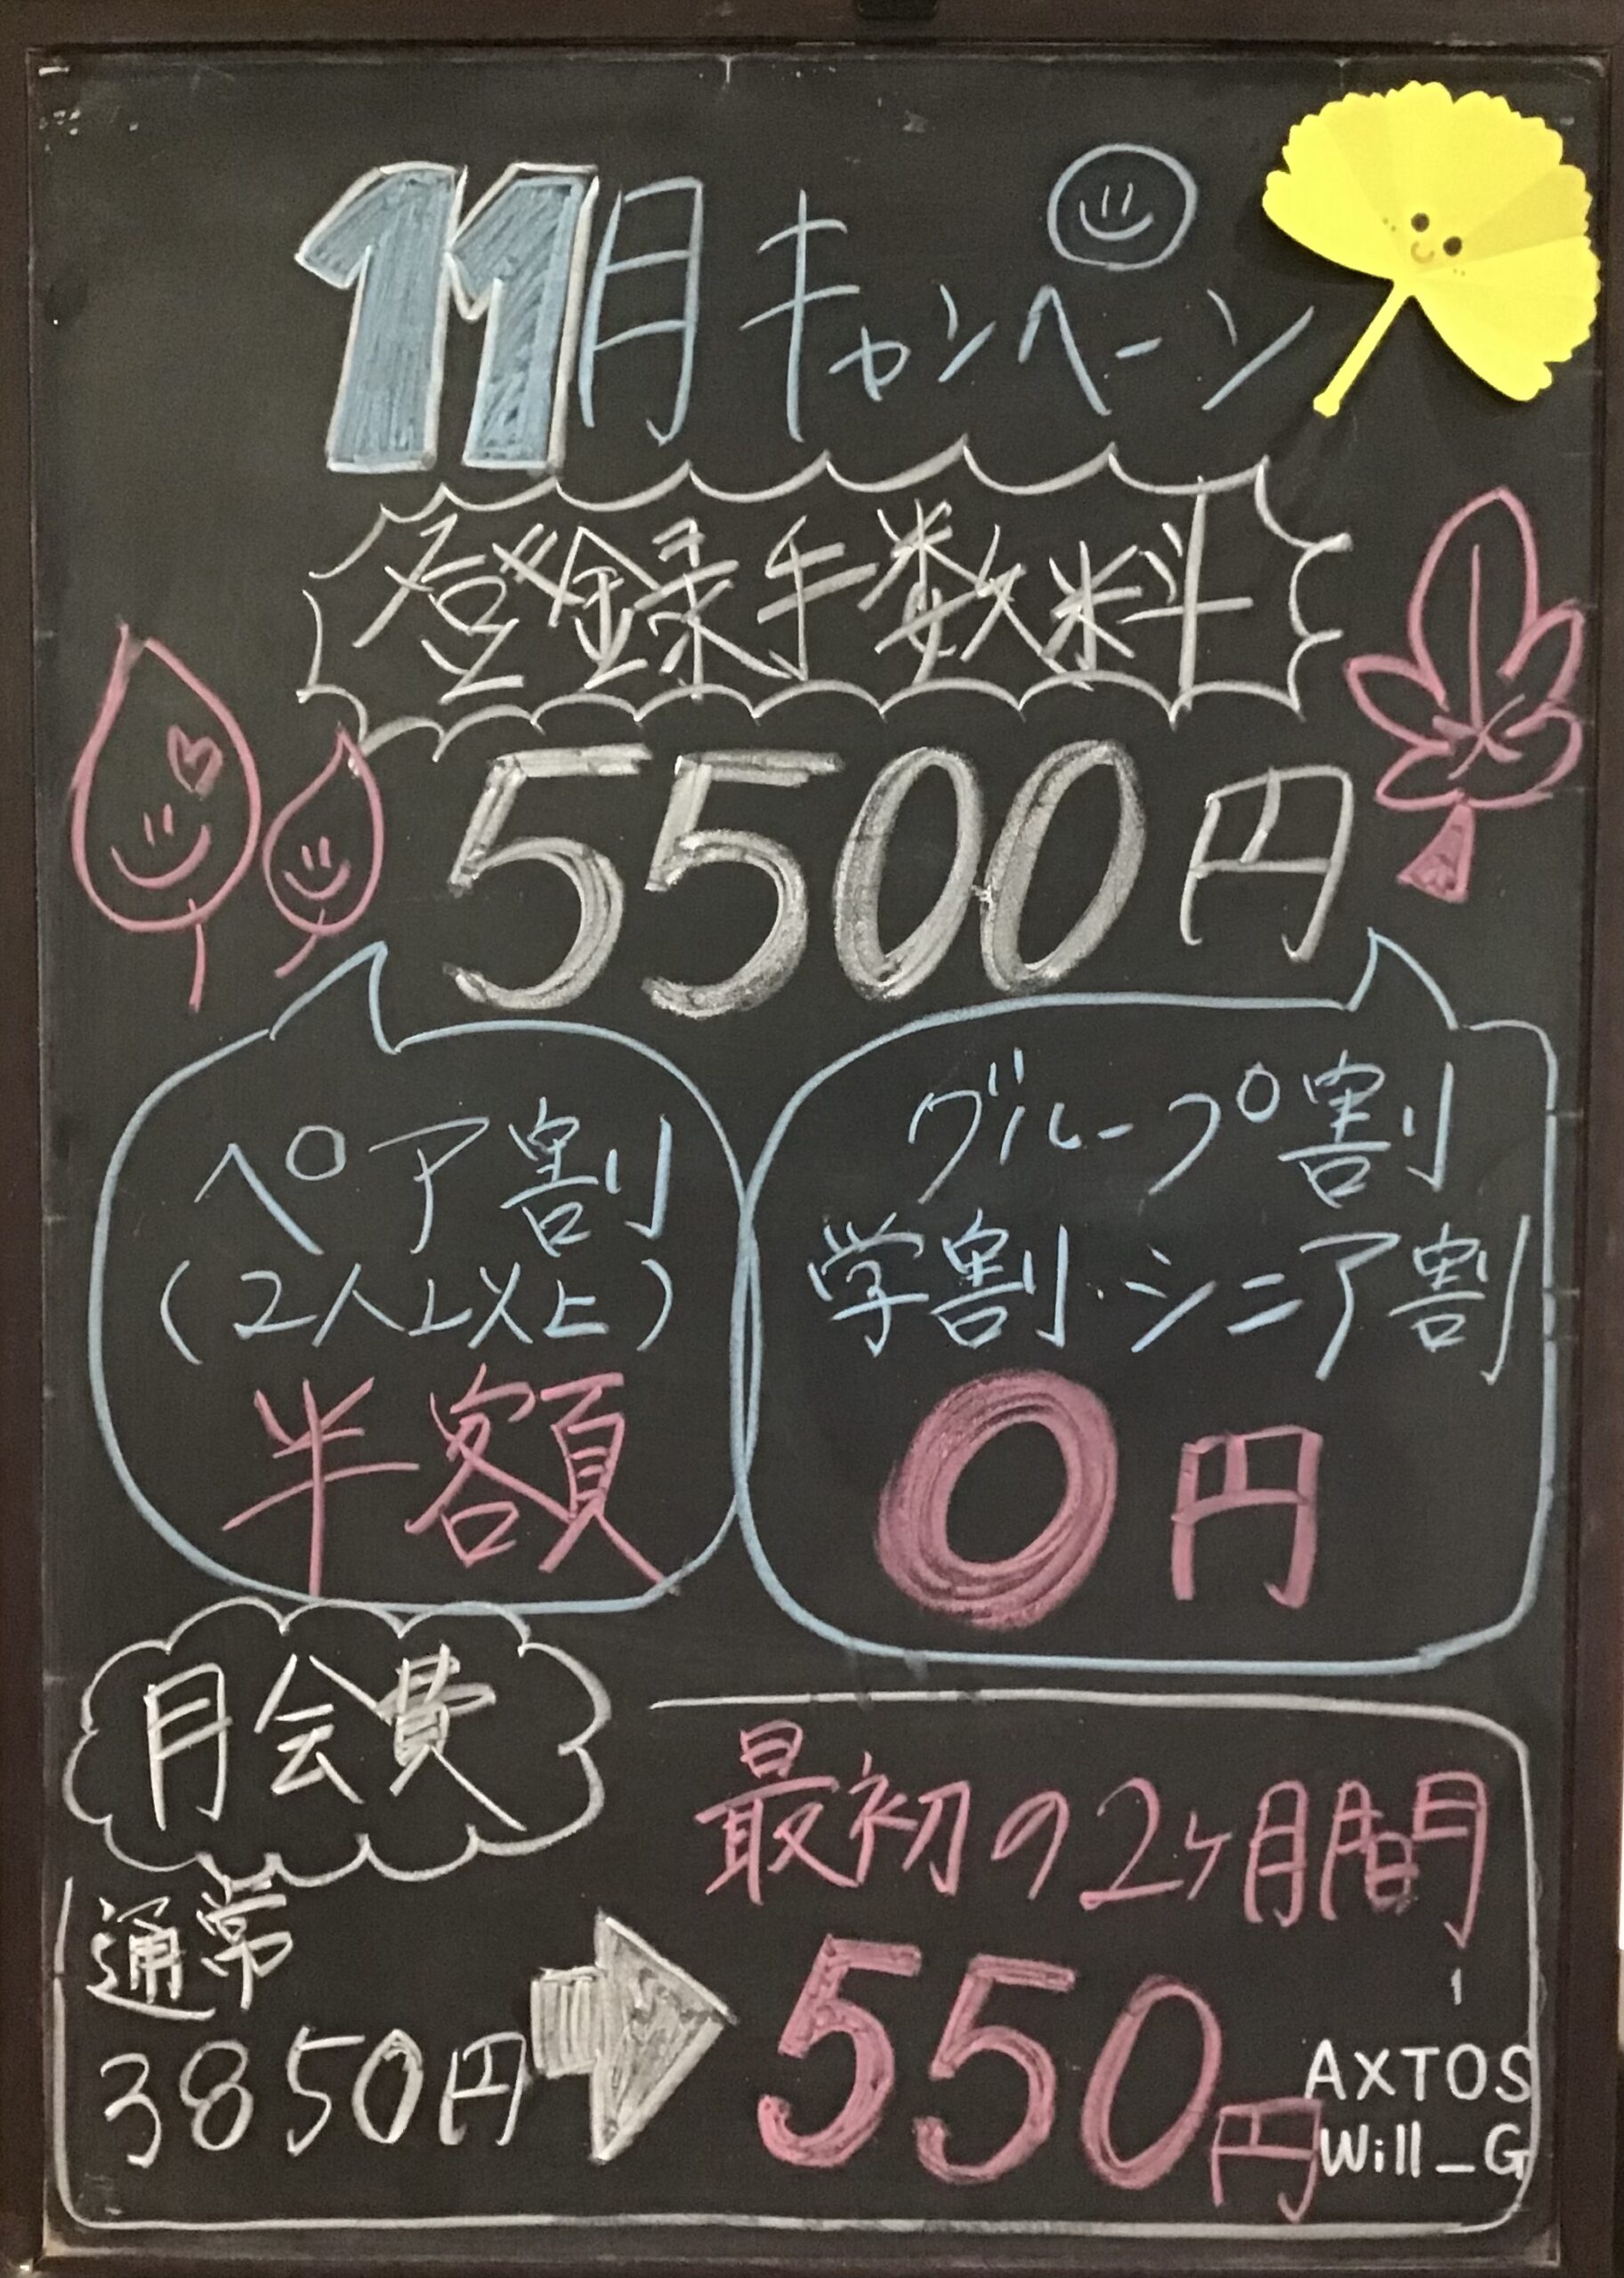 11月キャンペーン
登録手数料
5500円
ペア割
(2人以上)
半額
グループ割
学割・シニア割
0円
月会費
通常
3850円
最初の2ヶ月間
550円
AXTOS
Will_G